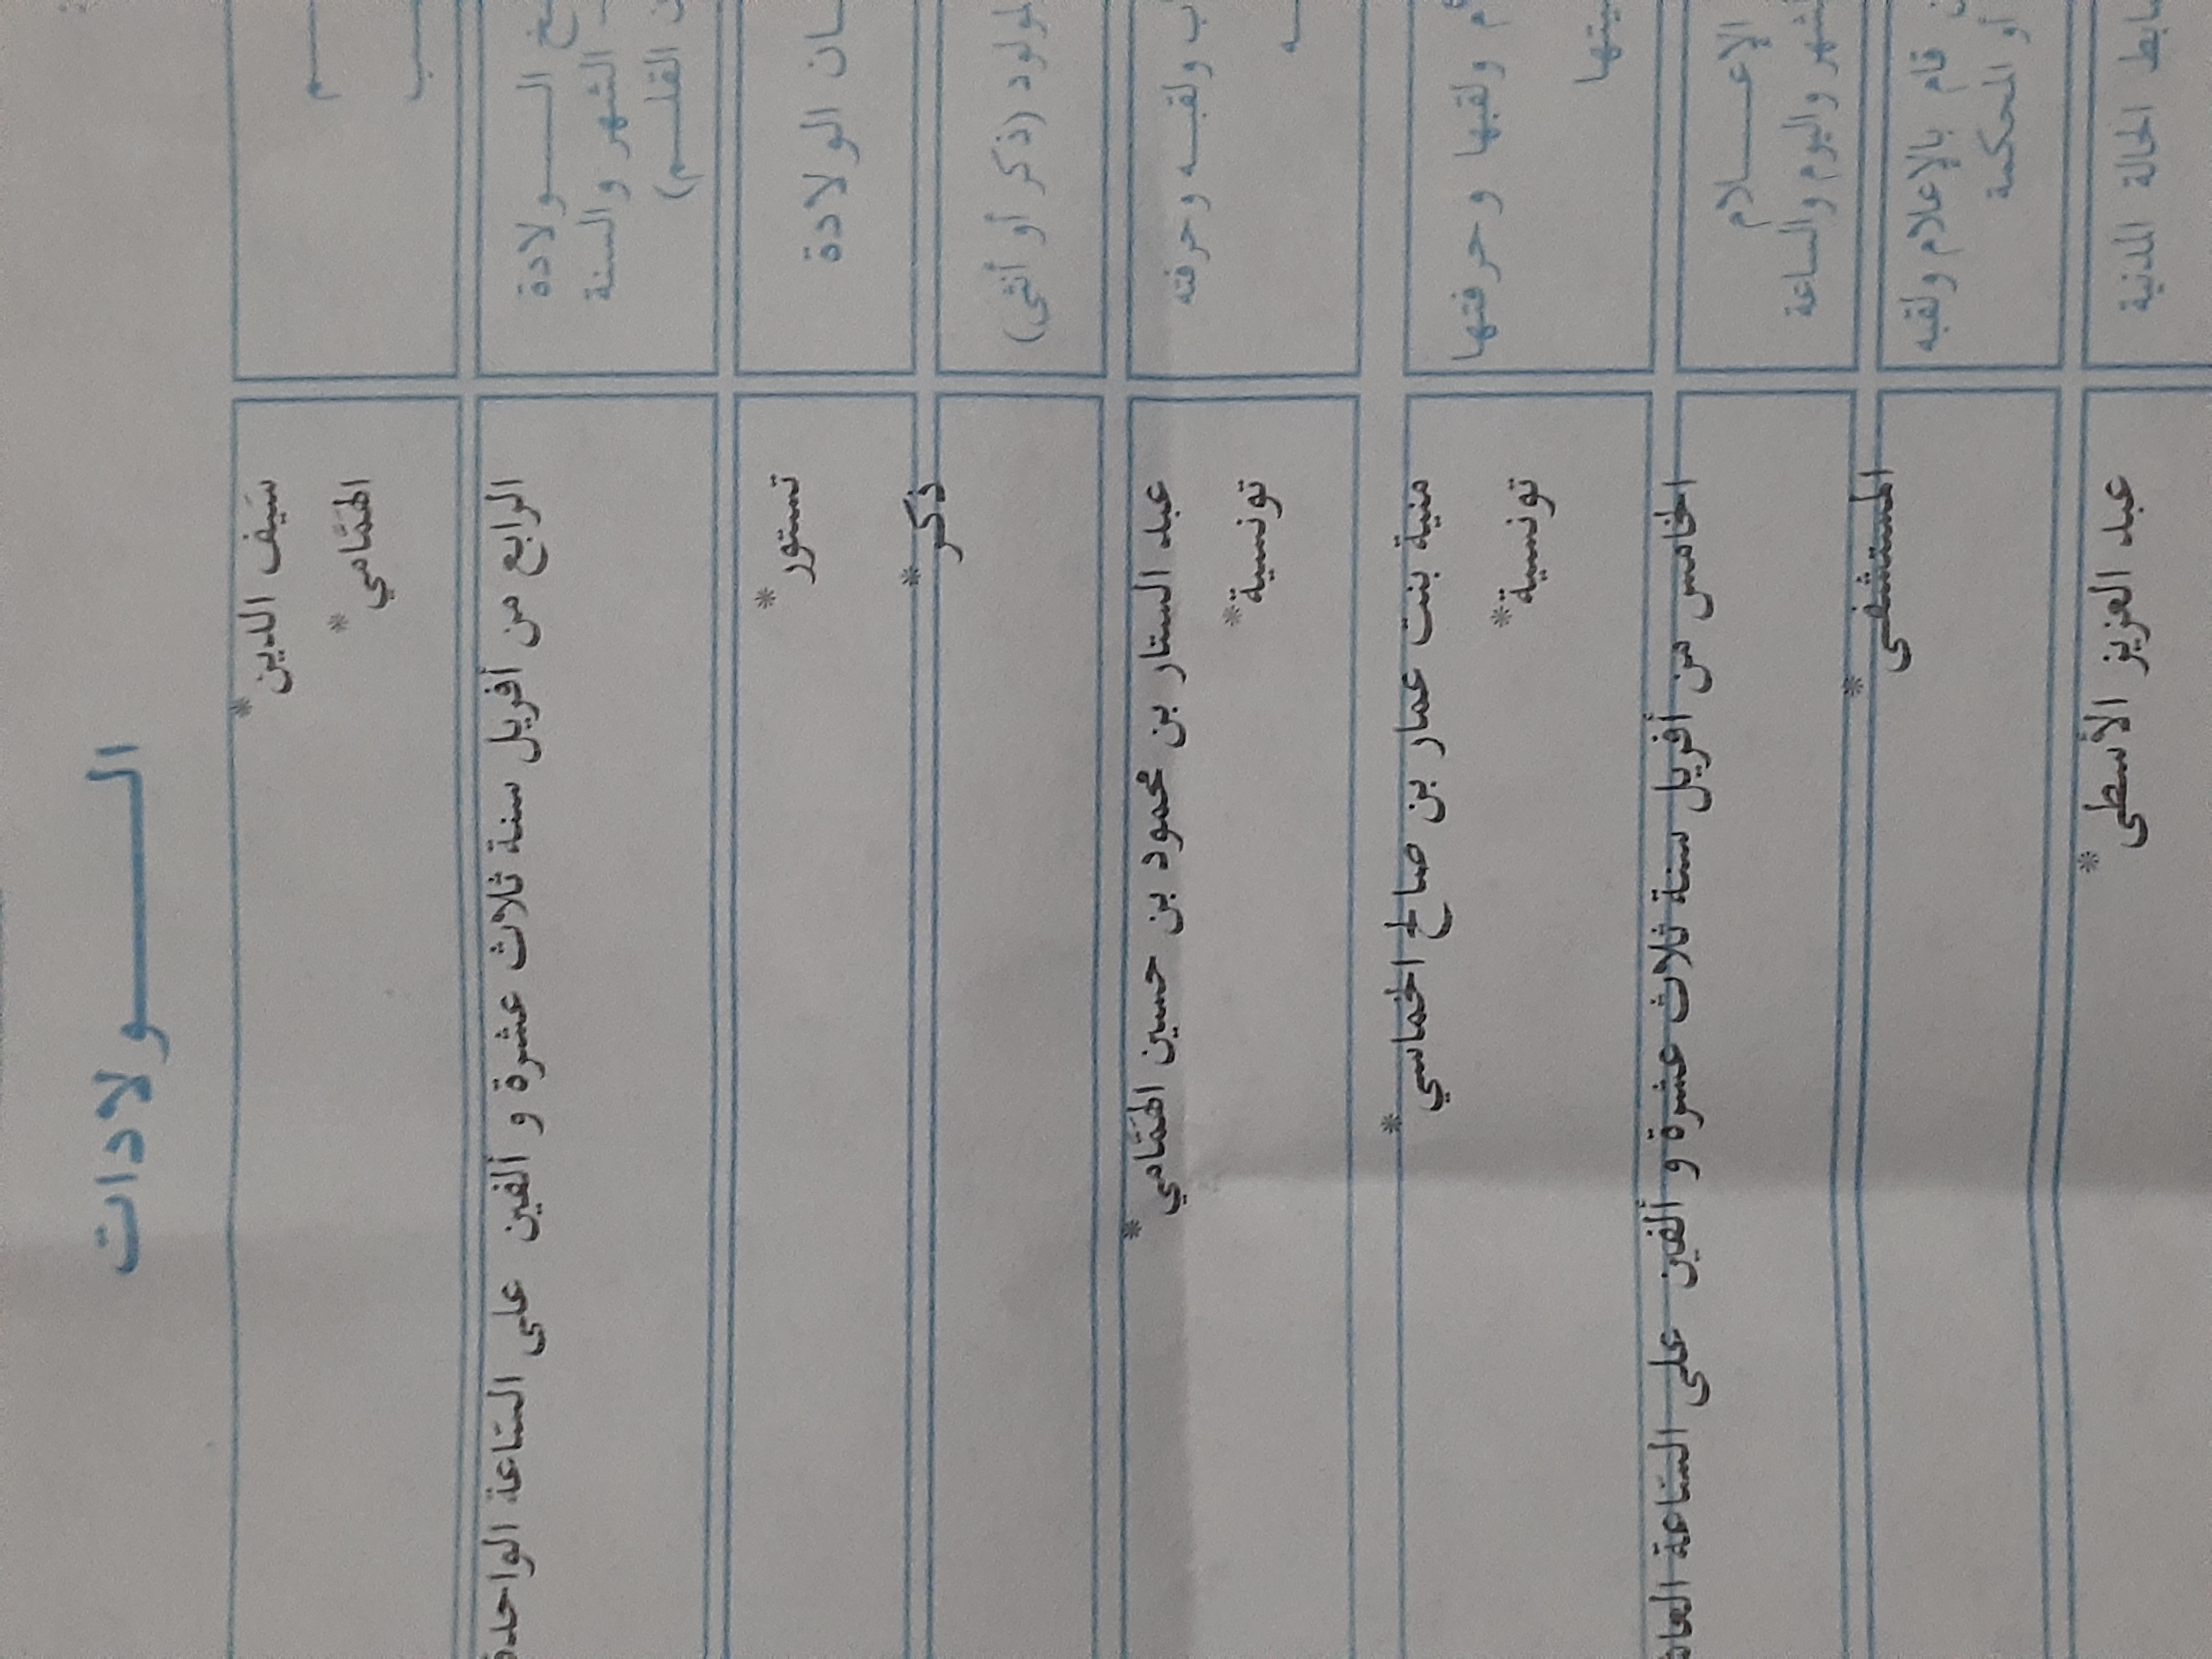 الـــــولادات
سَيف الدين *
الهَمّامي *
ـــولادة
الشهر والسنة
القلــم)
الرابع من أفريل سنة ثلاث عشرة و ألفين على السّاعة الواحدة
الولادة
تستور *
(ذكر أو أنثى)
ذكر *
ولقبــه وحرفته
عبد الستار بن محمود بن حسين الهَمّامي *
تونسية *
ولقبها وحرفتها
منية بنت عمار بن صالح الخماسي *
تونسية *
الإعـــلام
واليوم والساعة
الخامس من أفريل سنة ثلاث عشرة و ألفين على السّاعة
قام بالإعلام ولقبه
أو المحكمة
المستشفى *
الحالة المدنية
عبد العزيز الأسطى *